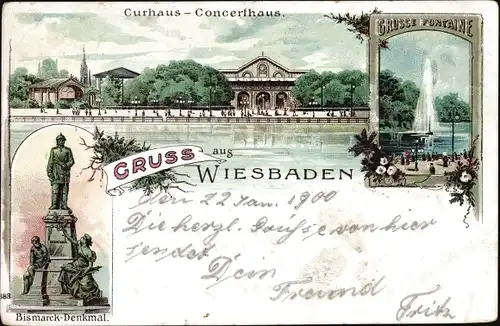 Curhaus - Concerthaus.
GROSSE FONTAINE
GRUSS aus
WIESBADEN
Den 22 Jan. 1900
Die herzl. Grüsse von hier
sendet
Dein
Freund
Fritz
Bismarck-Denkmal.